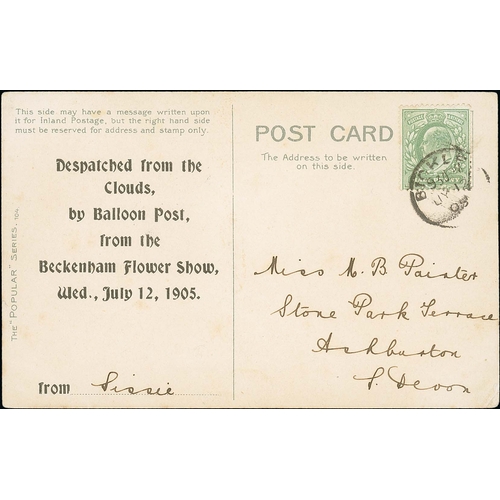 This side may have a message written upon
it for Inland Postage, but the right hand side
must be reserved for address and stamp only.
POST CARD
The Address to be written
on this side.
Despatched from the
Clouds,
by Balloon Post,
from the
Beckenham Flower Show,
Wed., July 12, 1905.
from Sissie
THE "POPULAR" SERIES.
Miss M. B Painter
Stone Park Terrace
Ashburton
S. Devon